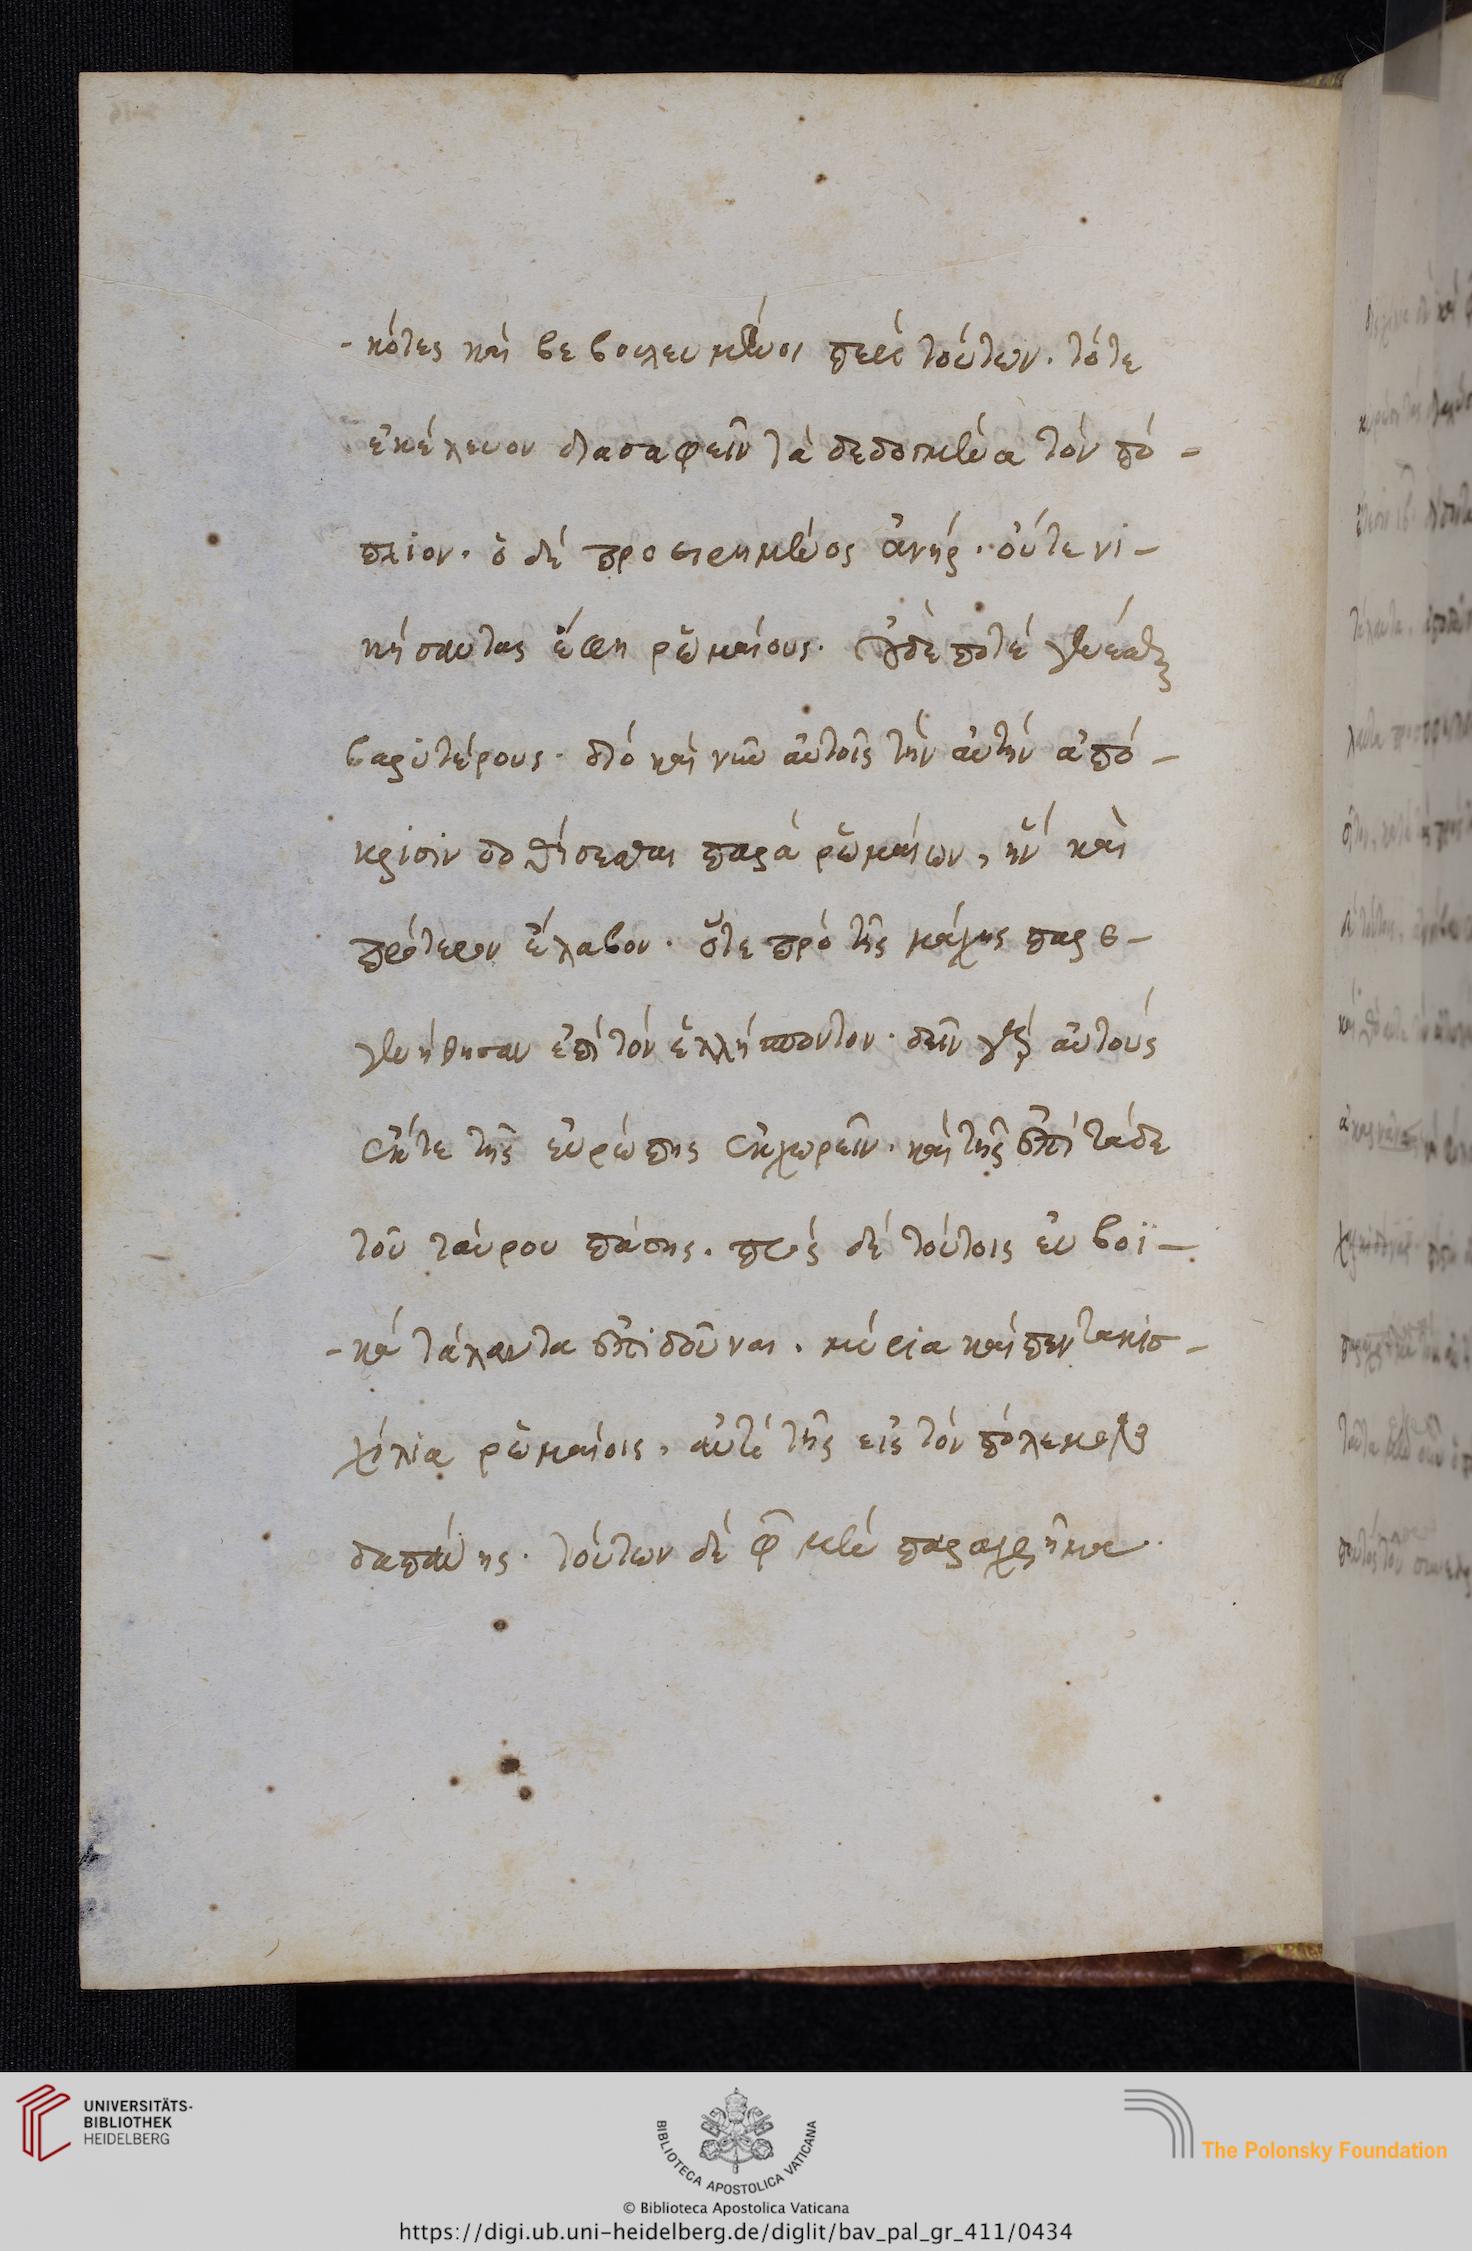 -κότες καὶ βεβουλευμένοι περὶ τούτων. τότε
ἐκέλευον διασαφεῖν τὰ δεδογμένα τὸν πό-
πλιον. ὁ δὲ προειρημένος ἀνήρ. οὔτε νι-
κήσαντας ἔφη ῥωμαίους. οὐδέποτε γενέσθαι
βαρυτέρους. διὸ καὶ νῦν αὐτοῖς τὴν αὐτὴν ἀπό-
κρισιν δοθήσεσθαι παρὰ ῥωμαίων, ἣν καὶ
πρότερον ἔλαβον. ὅτε πρὸ τῆς μάχης παρε-
γενήθησαν ἐπὶ τὸν ἑλλήσποντον. δεῖν γὰρ αὐτοὺς
ἔκ τε τῆς εὐρώπης ἐκχωρεῖν. καὶ τῆς ἐπὶ τάδε
τοῦ ταύρου πάσης. πρὸς δὲ τούτοις εὐβοϊ-
-κὰ τάλαντα ἐπιδοῦναι. μύρια καὶ πεντακισ-
χίλια ῥωμαίοις, ἀντὶ τῆς εἰς τὸν πόλεμον
δαπάνης. τούτων δὲ φ μὲν παραχρῆμα.
UNIVERSITÄTS-
BIBLIOTHEK
HEIDELBERG
BIBLIOTECA APOSTOLICA VATICANA
The Polonsky Foundation
© Biblioteca Apostolica Vaticana
https://digi.ub.uni-heidelberg.de/diglit/bav_pal_gr_411/0434